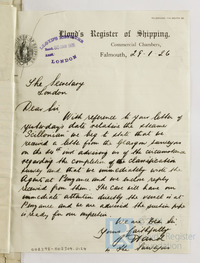 Lloyd's Register of Shipping,
Commercial Chambers,
Falmouth, 28.1.26
LLOYD'S REGISTER
LONDON
The Secretary
London
Dear Sir
With reference to your letter of
yesterday's date relative to the steamer
we beg to state that we
received a letter from the Glasgow Surveyors
on the and advising us of the circumstances
regarding the completion of the classification
survey and that we immediately wrote the
Agent at Penzance and we enclose reply
received from them. The case will have our
immediate attention directly the vessel is at
Penzance and we are advised the
is ready for our inspection
We are Dear Sir
Yours faithfully
to the Surveyors